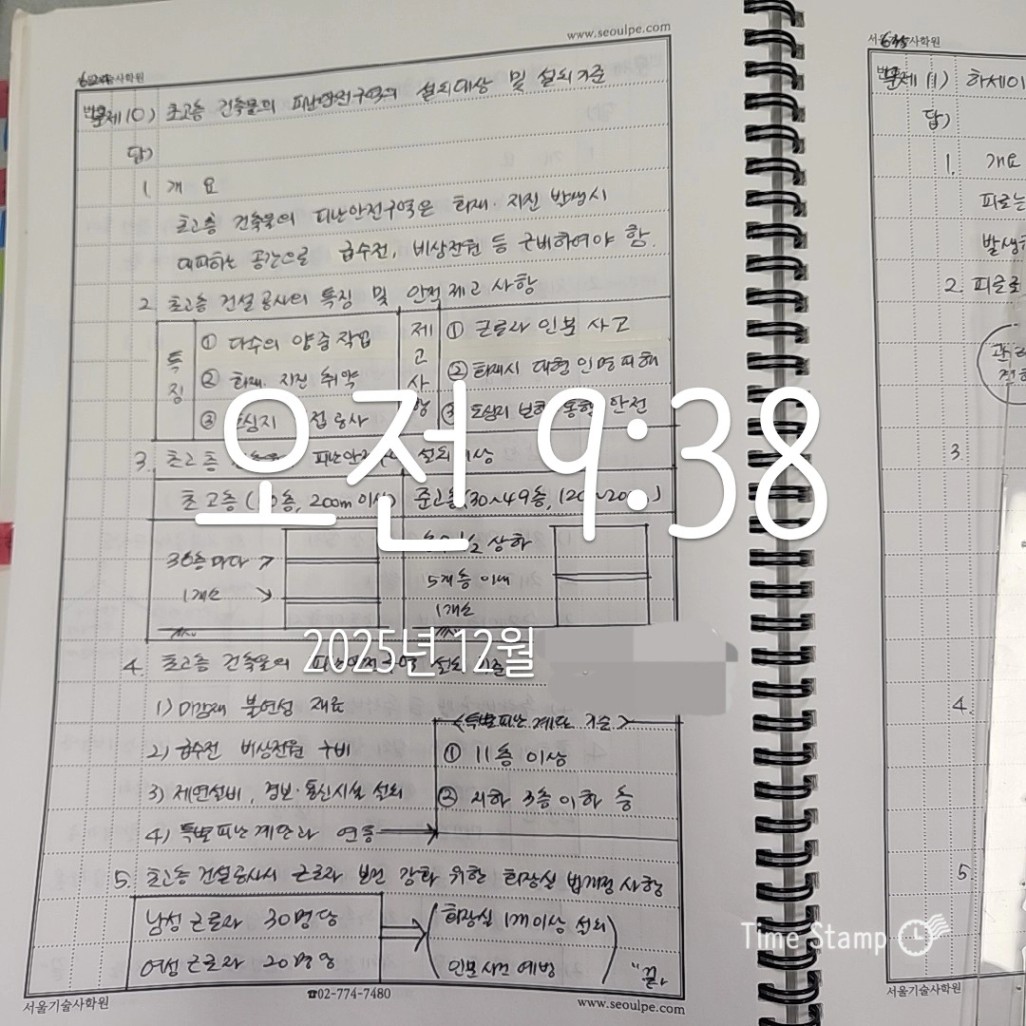 www.seoulpe.com
문제 10) 초고층 건축물의 피난안전구역의 설치대상 및 설치기준
답)
1. 개 요
초고층 건축물의 피난안전구역은 화재·지진 발생시
대피하는 공간으로 급수전, 비상전원 등 구비하여야 함.
2. 초고층 건설공사의 특징 및 안전 제고 사항
특징
① 다수의 양중작업
② 화재·지진 취약
③ 도심지 접 공사
제고사항
① 근로자 인분 사고
② 화재시 대형 인명피해
③ 도심지 보행 통행 안전
3. 초고층 피난안 설치대상
초고층 ( 0층, 200m 이상) 준고층(30~49층, 120~20 )
30층마다 →
1개소 →
상하
5개층 이내
1개소
4. 초고층 건축물의 피난안전구역 설치기준
1) 마감재 불연성 재료
2) 급수전 비상전원 구비
3) 제연설비, 경보·통신시설 설치
4) 특별피난계단과 연동 →
<특별피난계단 기준>
① 11층 이상
② 지하 3층 이하 층
5. 초고층 건설공사시 근로자 보건 강화 위한 화장실 법개정 사항
남성 근로자 30명당
여성 근로자 20명당
⇒ (화장실 1개이상 설치
인분사건 예방)
"끝"
서울기술사학원
☎02-774-7480
www.seoulpe.com
서울 사학원
문제 11) 하제이
답)
1. 개요
피로는
발생
2. 피로로
3.
4.
5
서울기술사학원
오전 9:38
2025년 12월
Time Stamp